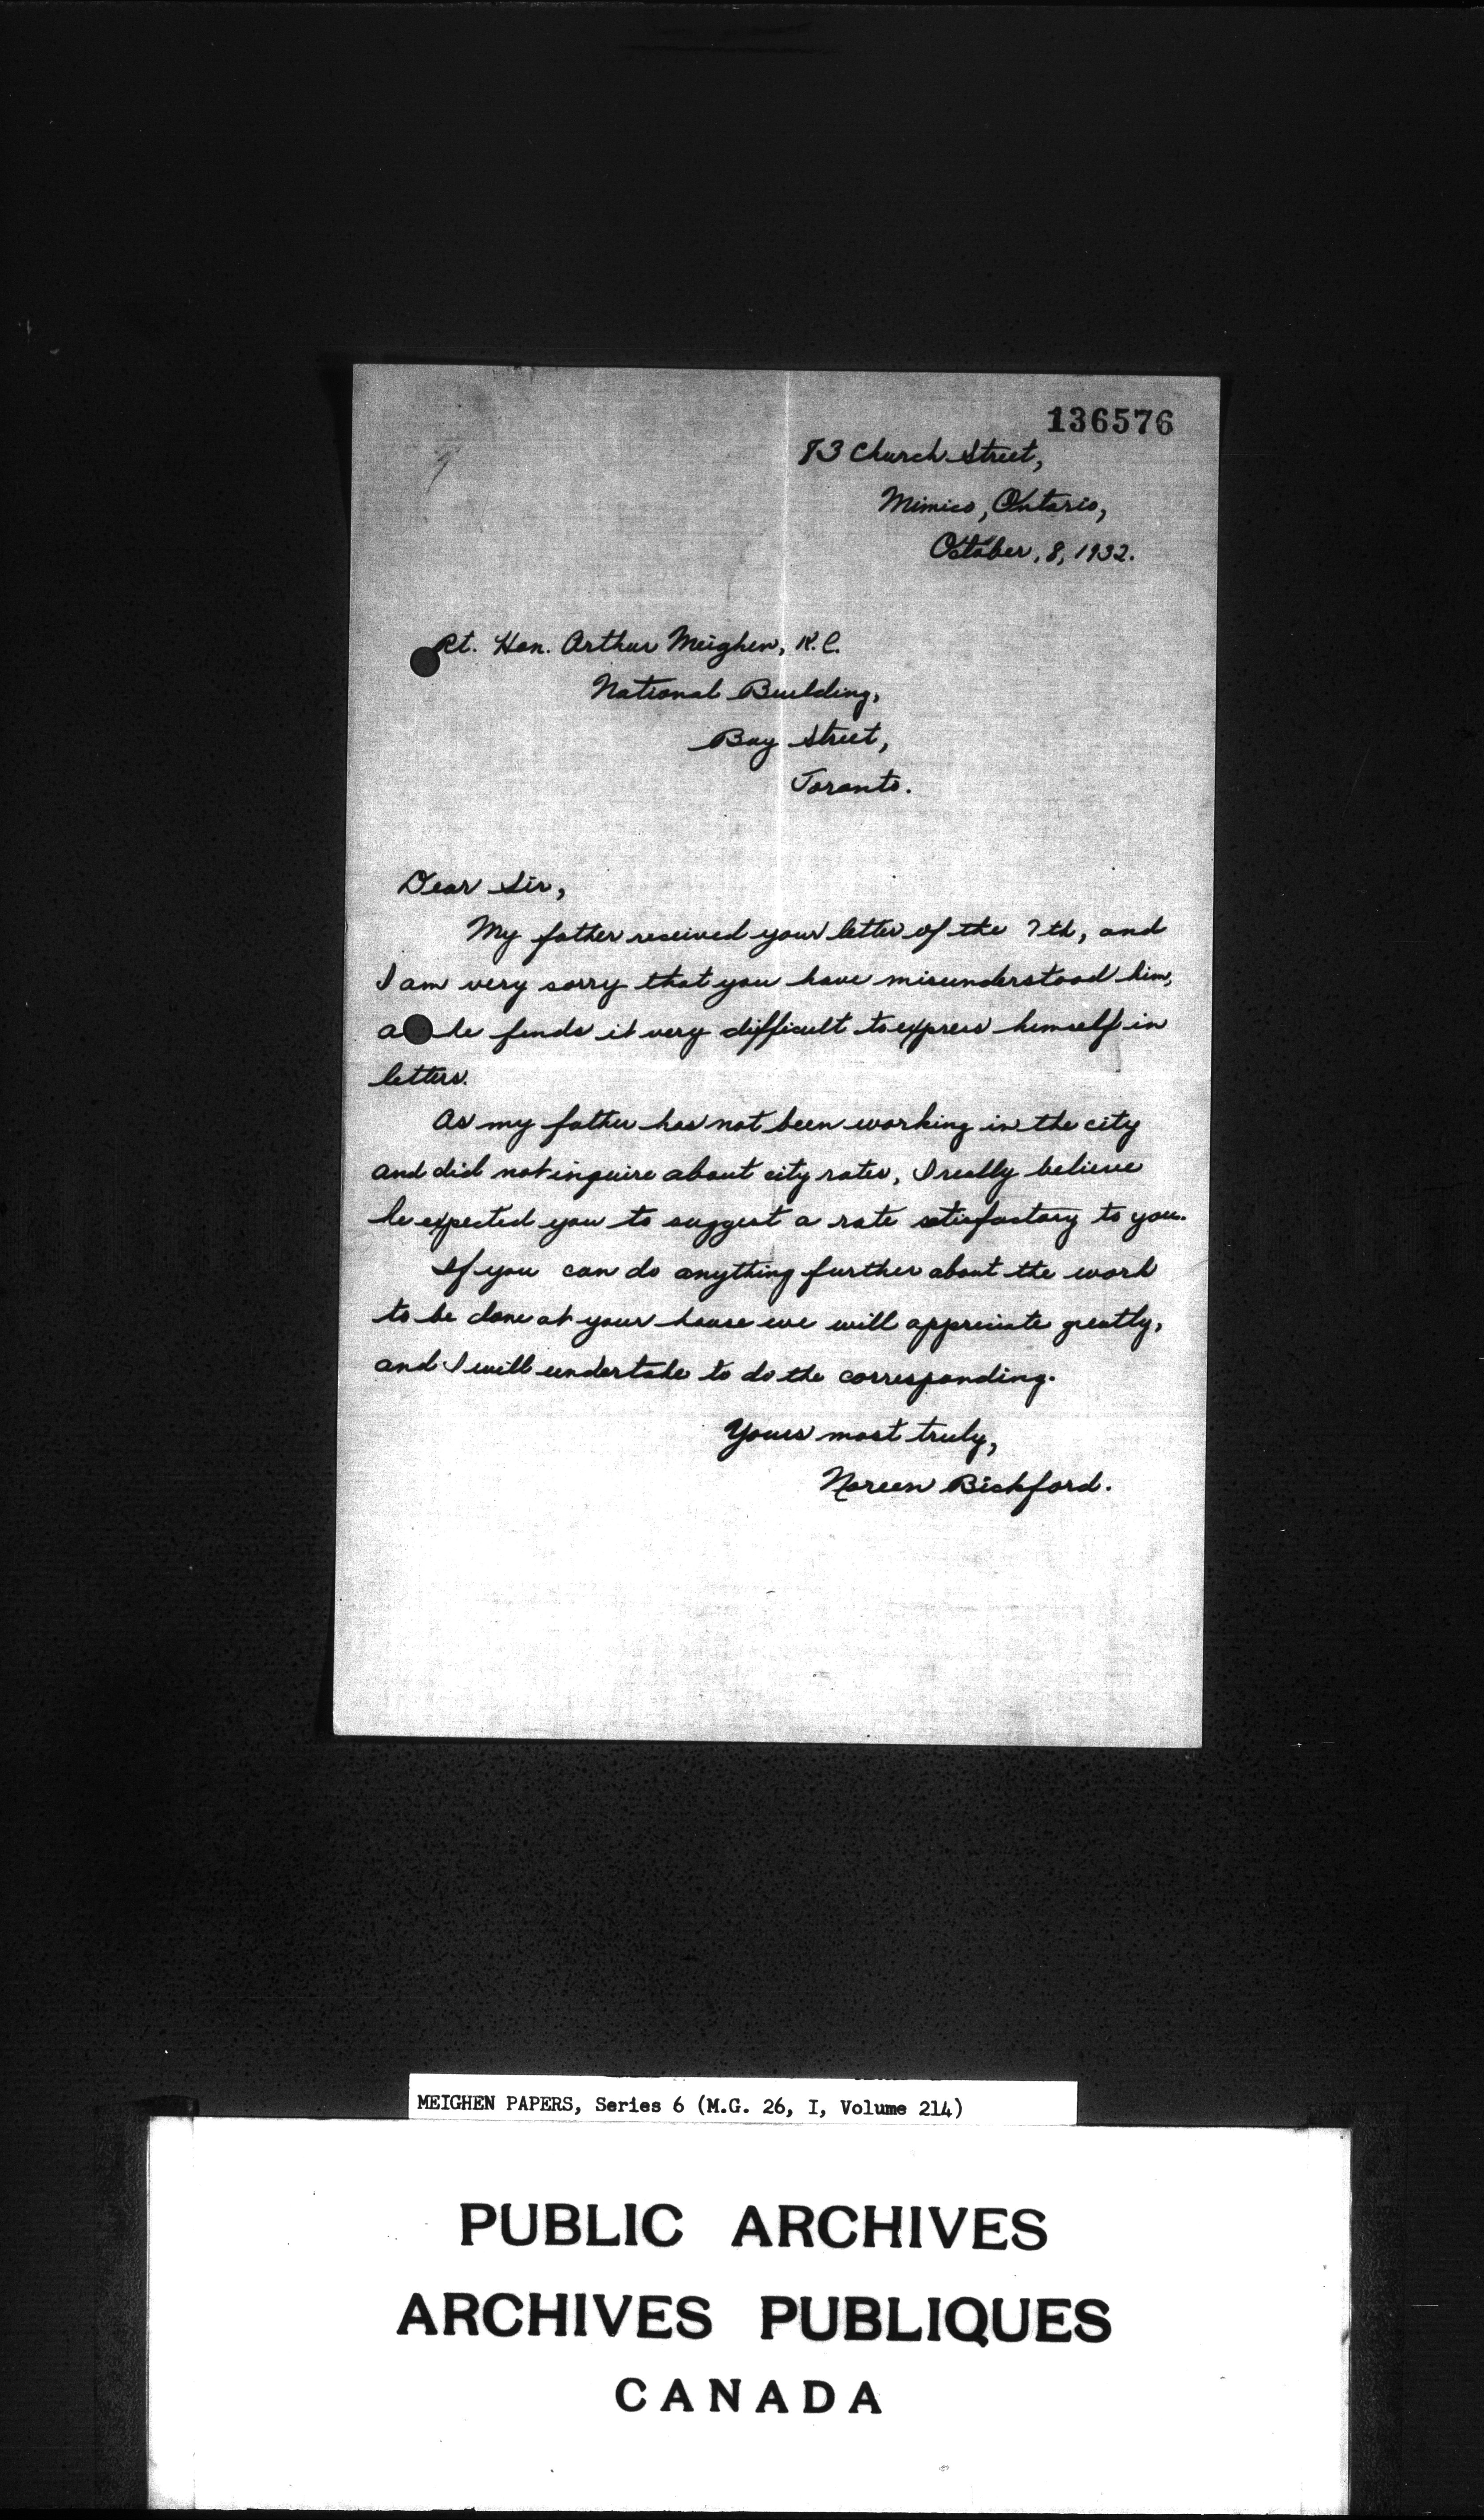 136576
83 Church Street,
Mimico, Ontario,
October, 8, 1932.
Rt. Hon. Arthur Meighen, K.C.
National Building,
Bay Street,
Toronto.
Dear Sir,
My father received your letter of the 7th, and
I am very sorry that you have misunderstood him,
a he finds it very difficult to express himself in
letters.
As my father has not been working in the city
and did not inquire about city rates, I really believe
he expected you to suggest a rate satisfactory to you.
If you can do anything further about the work
to be done at your house we will appreciate greatly,
and I will undertake to do the corresponding.
Yours most truly,
Noreen Bickford.
MEIGHEN PAPERS, Series 6 (M.G. 26, I, Volume 214)
PUBLIC ARCHIVES
ARCHIVES PUBLIQUES
CANADA